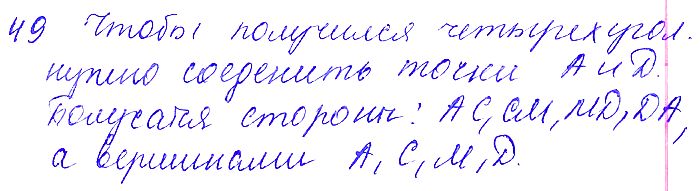 49 Чтобы получился четырехугол.
нужно соеденить точки А и D.
Получатся стороны: АС, СМ, МD, DА,
а вершинами А, С, М, D.